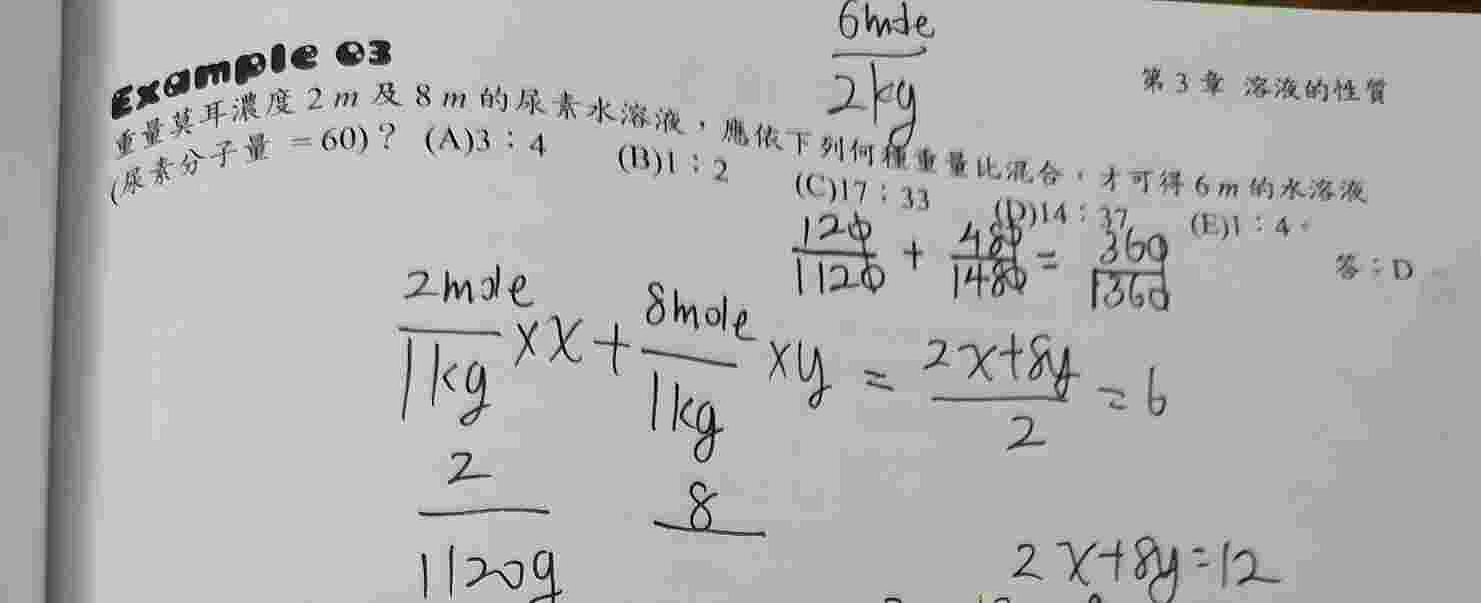 6mole
2kg
Example 03
第 3 章 溶液的性質
重量莫耳濃度 2 m 及 8 m 的尿素水溶液,應依下列何種重量比混合,才可得 6 m 的水溶液
(尿素分子量 = 60)? (A)3:4 (B)1:2 (C)17:33 (D)14:37 (E)1:4。
答:D
120/1120 + 480/1480 = 360/1360
2mole/1kg ×x + 8mole/1kg ×y = 2x+8y/2 = 6
2
1120g
8
2x+8y=12